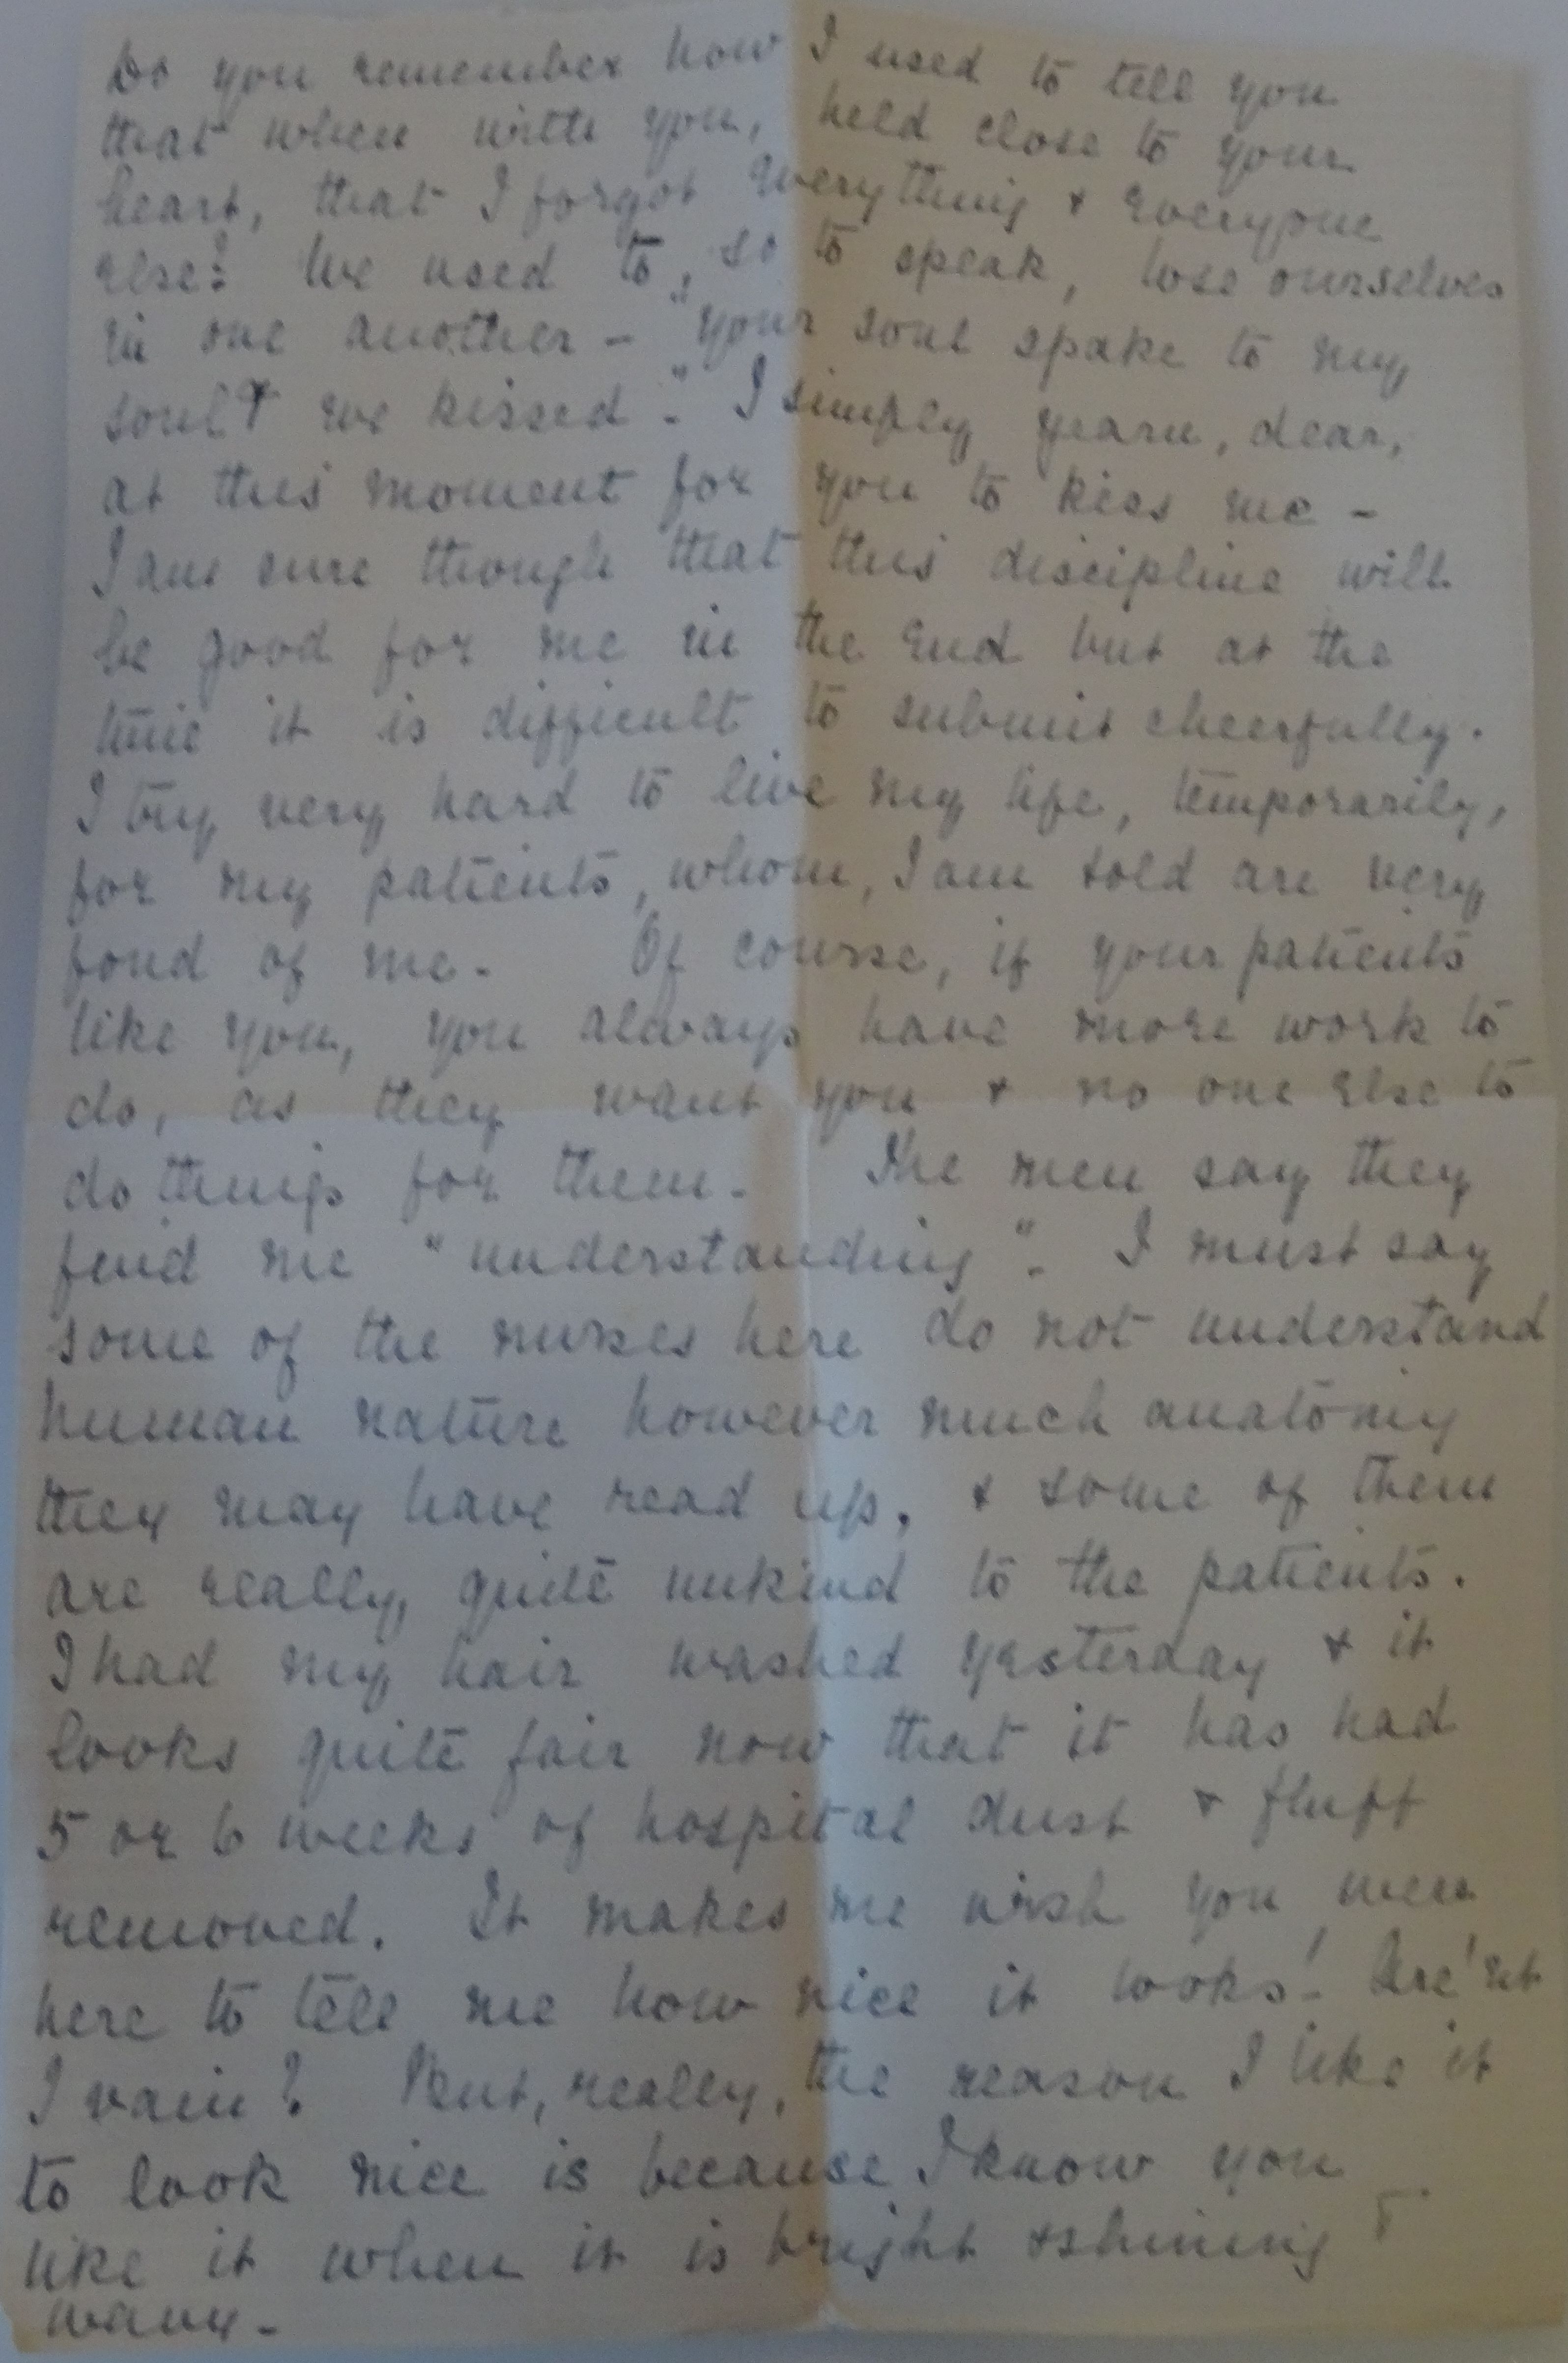 Do you remember how I used to tell you
that when with you, held close to your
heart, that I forgot everything & everyone
else? We used to, so to speak, lose ourselves
in one another – "your soul spake to my
soul & we kissed". I simply yearn, dear,
at this moment for you to kiss me –
I am sure though that this discipline will
be good for me in the end but at the
time it is difficult to submit cheerfully.
I try very hard to live my life, temporarily,
for my patients, whom, I am told are very
fond of me. Of course, if your patients
like you, you always have more work to
do, as they want you & no one else to
do things for them. The men say they
find me "understanding". I must say
some of the nurses here do not understand
human nature however much anatomy
they may have read up, & some of them
are really, quite unkind to the patients.
I had my hair washed yesterday & it
looks quite fair now that it has had
5 or 6 weeks of hospital dust & fluff
removed. It makes me wish you were
here to tell me how nice it looks! Are'nt
I vain? But, really, the reason I like it
to look nice is because I know you
like it when it is bright & shining
wavy.